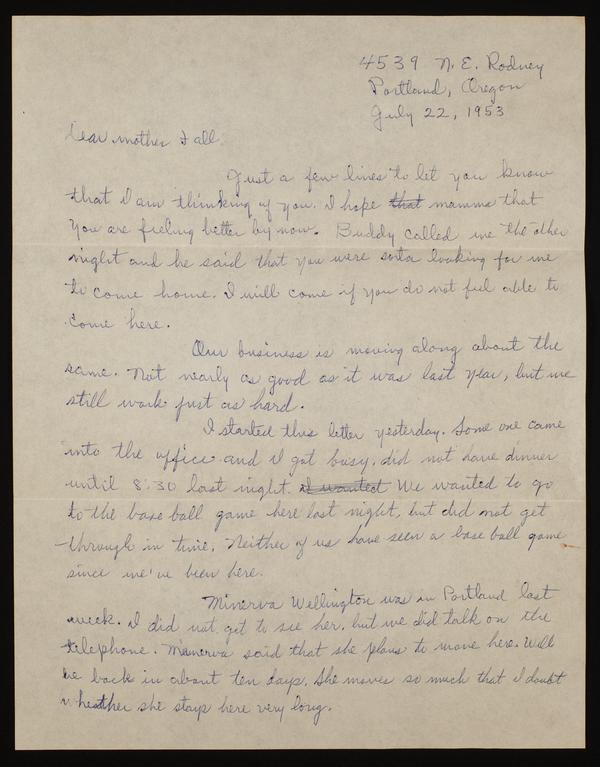 4539 N. E. Rodney
Portland, Oregon
July 22, 1953
Dear mother & all
Just a few lines to let you know
that I am thinking of you. I hope that mamma that
you are feeling better by now. Buddy called me the other
night and he said that you were sorta looking for me
to come home. I will come if you do not feel able to
come here.
Our business is moving along about the
same. Not nearly as good as it was last year, but we
still work just as hard.
I started this letter yesterday. Some one came
into the office and I got busy, did not have dinner
until 8:30 last night. I wanted We wanted to go
to the base ball game here last night, but did not get
through in time. Neither of us have seen a base ball game
since we've been here.
Minerva Wellington was in Portland last
week. I did not get to see her, but we did talk on the
telephone. Manerva said that she plans to move here. Will
be back in about ten days. She moves so much that I doubt
wheather she stays here very long.